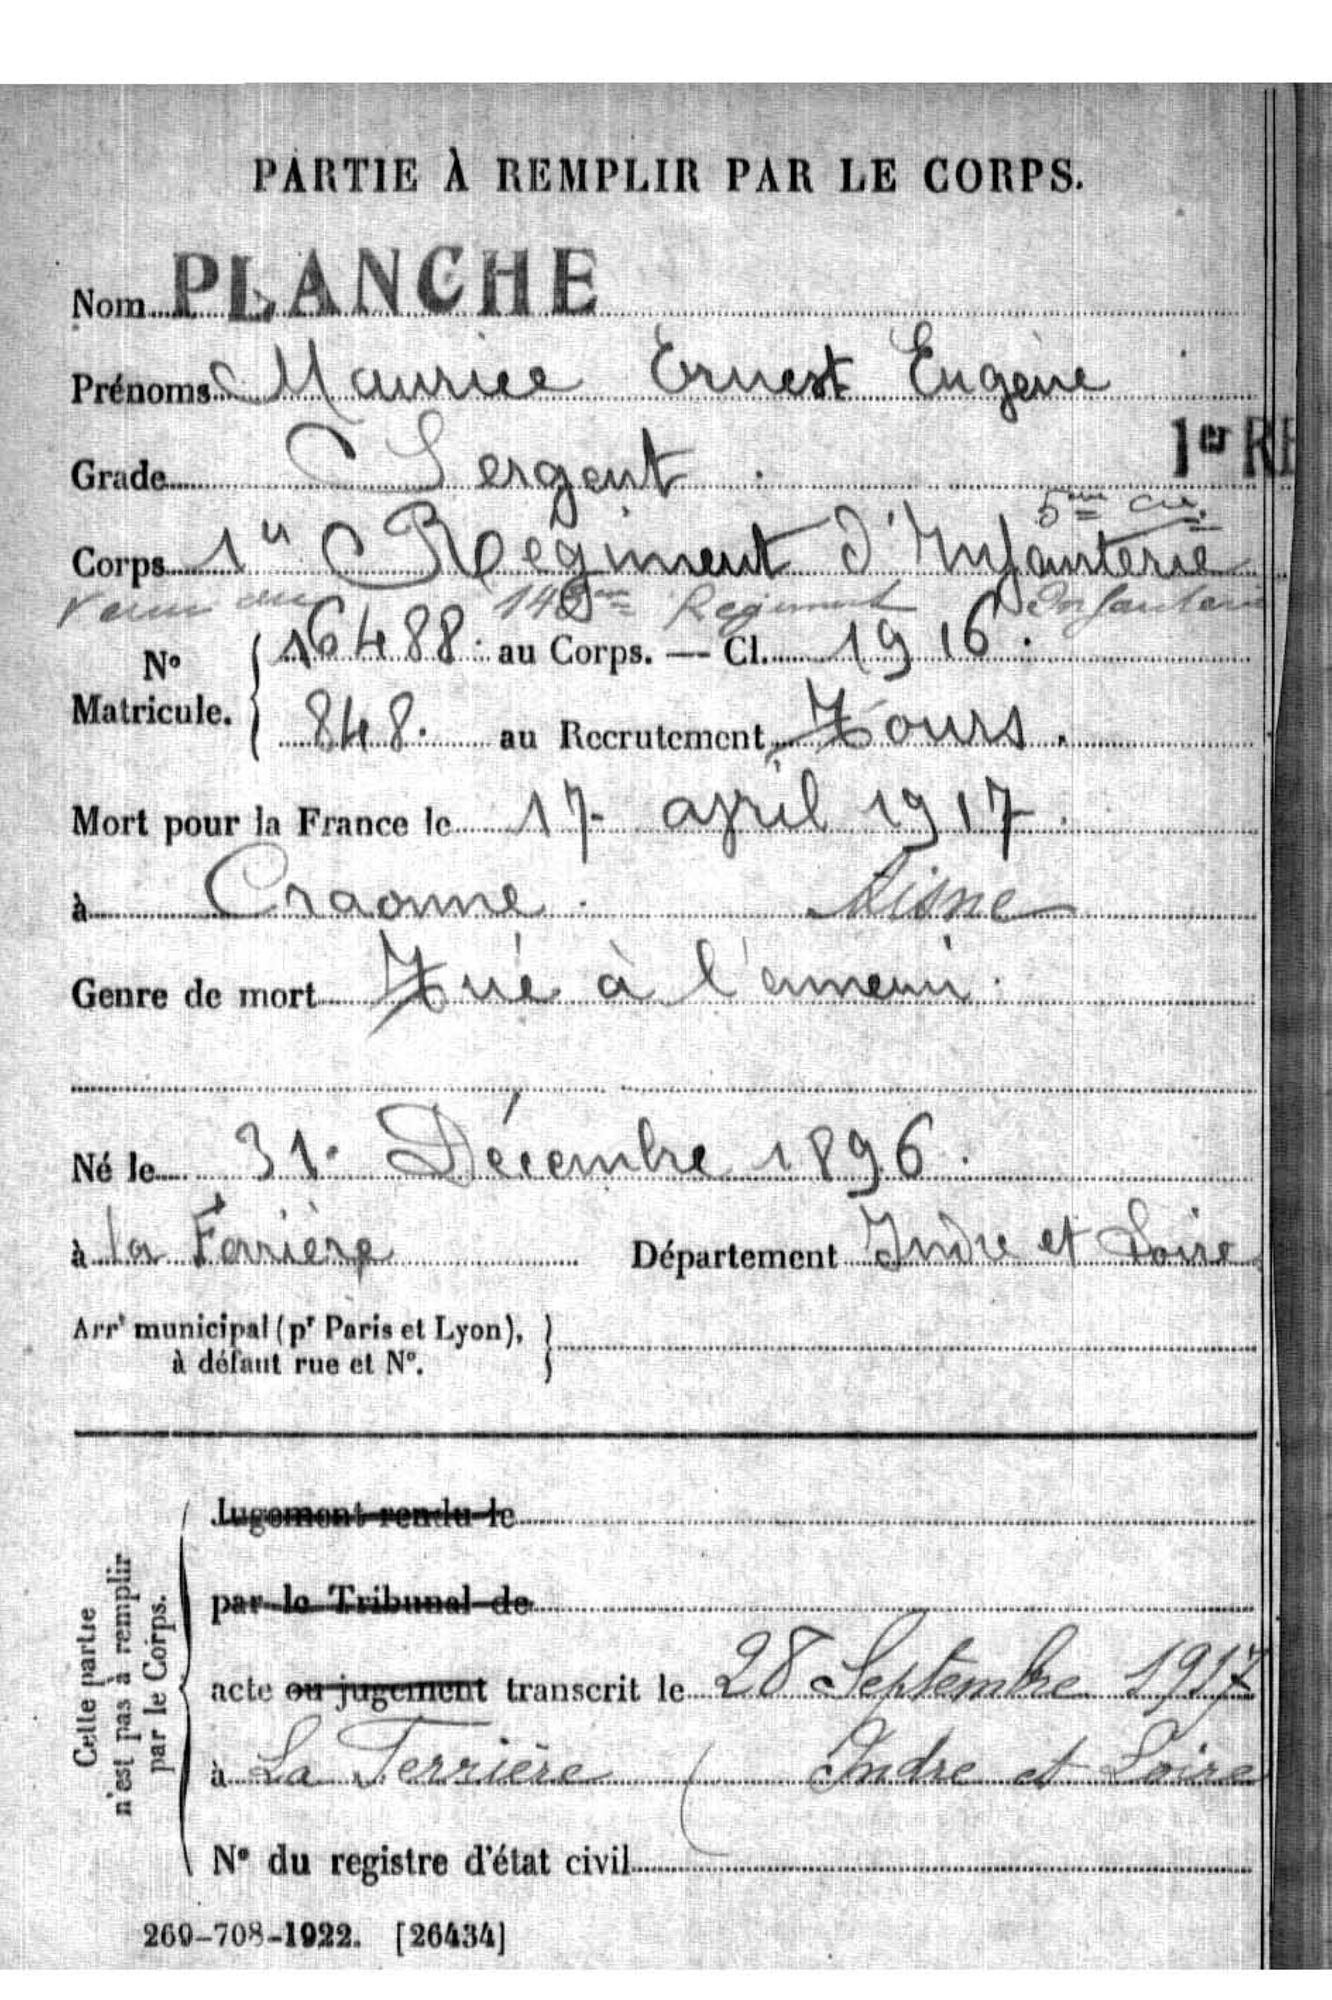 PARTIE À REMPLIR PAR LE CORPS.
Nom PLANCHE
Prénoms Maurice Ernest Eugène
Grade Sergent
1er RE
5me Cie
Corps 1er Régiment d'Infanterie
Venu du Régiment Infanterie
N° Matricule. 16488. au Corps. — Cl. 1916.
848. au Recrutement Tours.
Mort pour la France le 17 avril 1917.
à Craonne. Aisne
Genre de mort Tué à l'ennemi.
Né le 31. Décembre 1896.
à la Ferrière Département Indre et Loire
Arrt municipal (pr Paris et Lyon),
à défaut rue et N°.
Cette partie n'est pas à remplir par le Corps.
Jugement rendu le
par le Tribunal de
acte ou jugement transcrit le 28 Septembre 1917
à La Ferrière ( Indre et Loire
N° du registre d'état civil
269-708-1922. [26434]